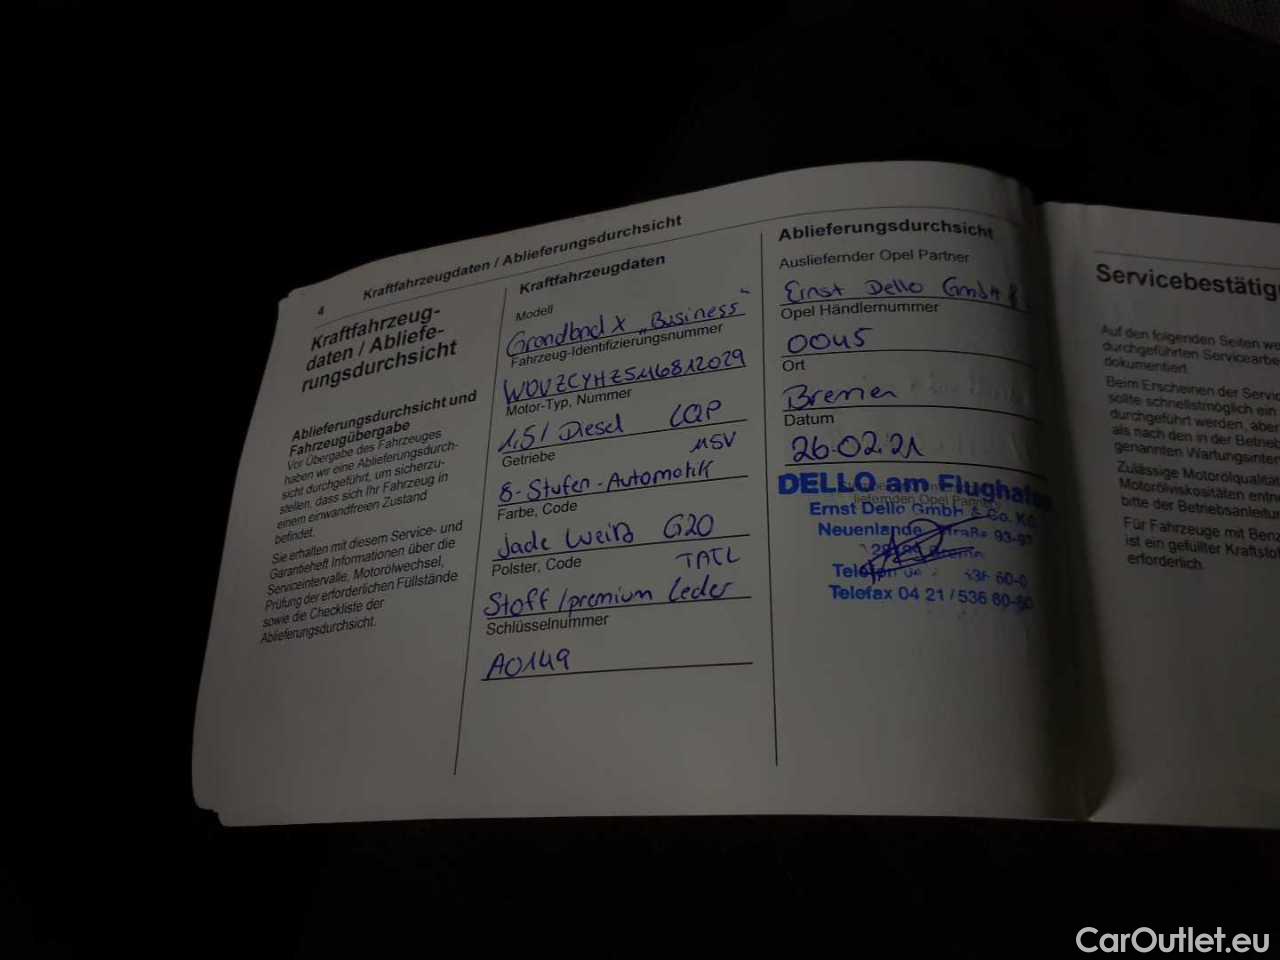 4
Kraftfahrzeugdaten / Ablieferungsdurchsicht
Kraftfahrzeug-
daten / Abliefe-
rungsdurchsicht
Ablieferungsdurchsicht und
Fahrzeugübergabe
Vor Übergabe des Fahrzeuges
haben wir eine Ablieferungsdurch-
sicht durchgeführt, um sicherzu-
stellen, dass sich Ihr Fahrzeug in
einem einwandfreien Zustand
befindet.
Sie erhalten mit diesem Service- und
Garantieheft Informationen über die
Serviceintervalle, Motorölwechsel,
Prüfung der erforderlichen Füllstände
sowie die Checkliste der
Ablieferungsdurchsicht.
Kraftfahrzeugdaten
Modell
Grandland X „Business"
Fahrzeug-Identifizierungsnummer
W0VZCYHZ5M6812029
Motor-Typ, Nummer
1,5 l Diesel LQP
Getriebe
MSV
8-Stufen-Automatik
Farbe, Code
Jade Weiß G20
Polster, Code
TATL
Stoff/premium Leder
Schlüsselnummer
A0149
Ablieferungsdurchsicht
Ausliefernder Opel Partner
Ernst Dello GmbH &
Opel Händlernummer
0045
Ort
Bremen
Datum
26.02.21
DELLO am Flughafen
liefernden Opel
Ernst Dello GmbH & Co. KG
Neuenlander Straße 93-97
Bremen
Telefon 60-0
Telefax 04 21 / 536 60-60
Servicebestätig
Auf den folgenden Seiten we
durchgeführten Servicearbe
dokumentiert.
Beim Erscheinen der Servic
sollte schnellstmöglich ein
durchgeführt werden, aber
als nach den in der Betrieb
genannten Wartungsinter
Zulässige Motorölqualität
Motorölviskositäten entn
bitte der Betriebsanleitu
Für Fahrzeuge mit Benz
ist ein gefüllter Kraftstof
erforderlich.
CarOutlet.eu